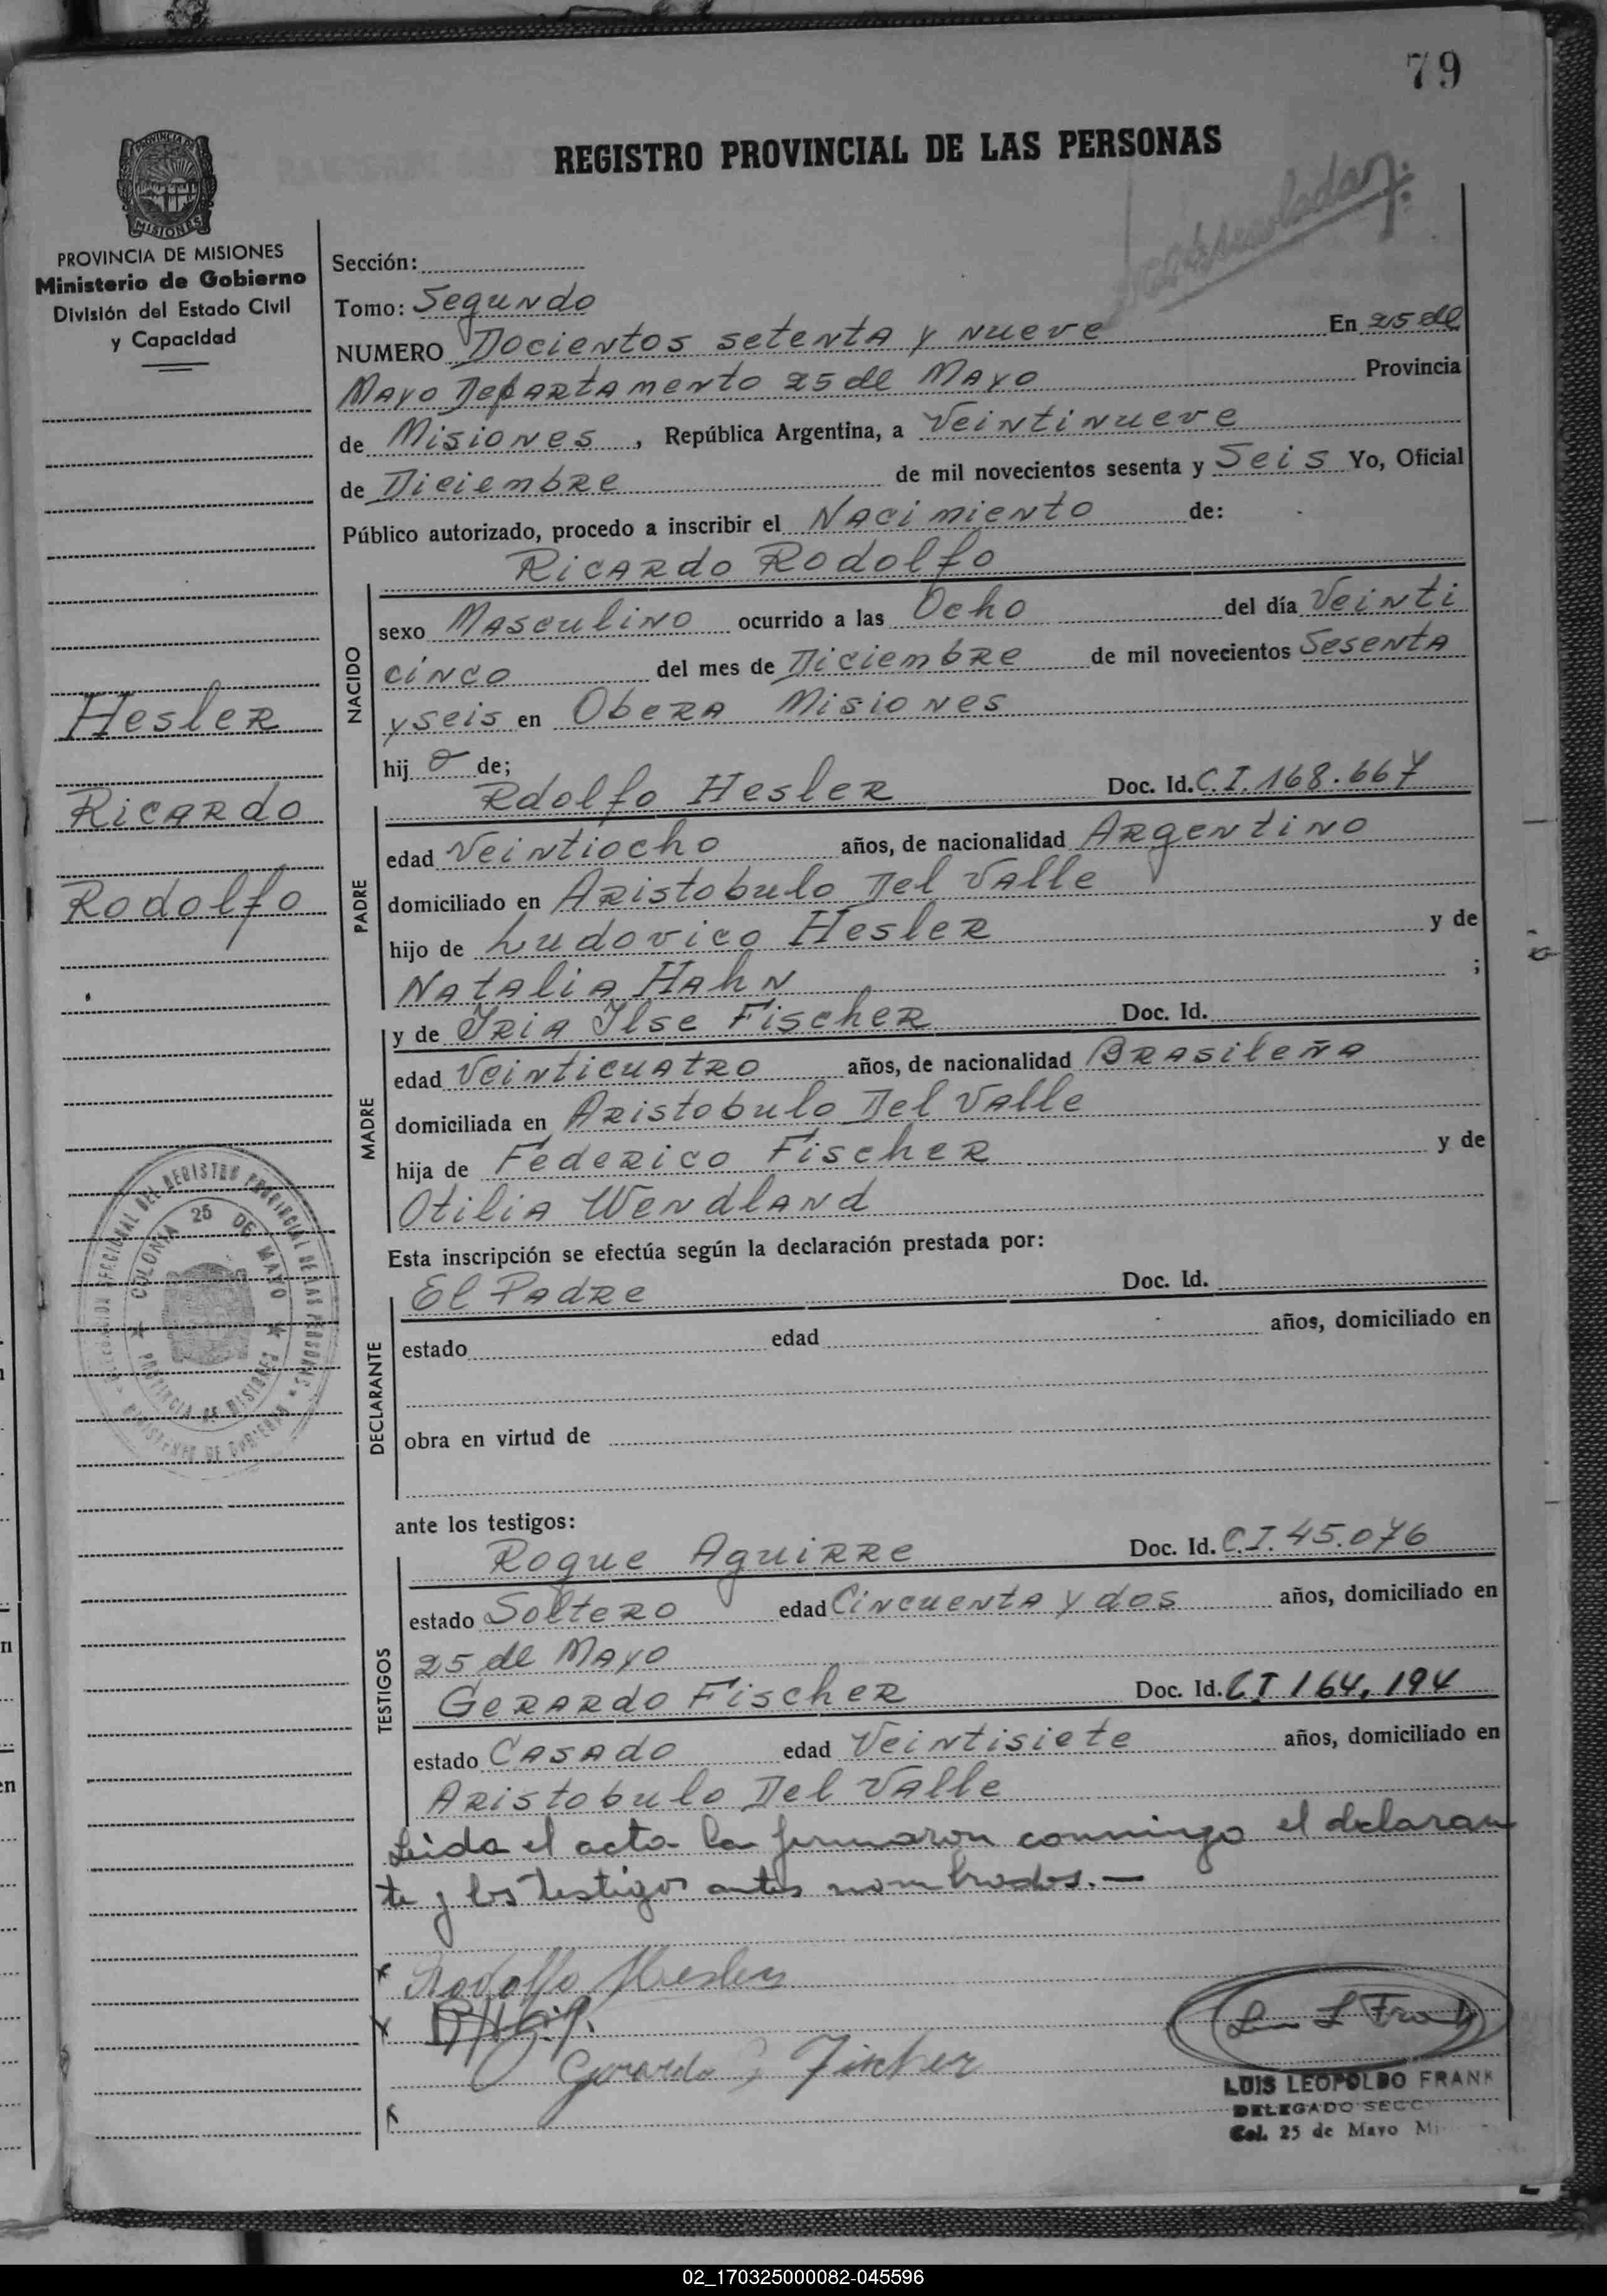 79
REGISTRO PROVINCIAL DE LAS PERSONAS
PROVINCIA DE MISIONES
MISIONES
PROVINCIA DE MISIONES
Ministerio de Gobierno
División del Estado Civil
y Capacidad
Hesler
Ricardo
Rodolfo
Sección:
Tomo: Segundo
NUMERO Docientos setenta y nueve En 25 de
Mayo Departamento 25 de Mayo Provincia
de Misiones , República Argentina, a Veintinueve
de Diciembre de mil novecientos sesenta y Seis Yo, Oficial
Público autorizado, procedo a inscribir el Nacimiento de:
Ricardo Rodolfo
NACIDO
sexo Masculino ocurrido a las Ocho del día Veinti
cinco del mes de Diciembre de mil novecientos Sesenta
y seis en Obera Misiones
hij o de;
PADRE
Rdolfo Hesler Doc. Id. C.I. 168.667
edad Veintiocho años, de nacionalidad Argentino
domiciliado en Aristobulo Del Valle
hijo de Ludovico Hesler y de
Natalia Hahn ;
MADRE
y de Iria Ilse Fischer Doc. Id.
edad Veinticuatro años, de nacionalidad Brasileña
domiciliada en Aristobulo Del Valle
hija de Federico Fischer y de
Otilia Wendland
Esta inscripción se efectúa según la declaración prestada por:
DECLARANTE
El Padre Doc. Id.
estado edad años, domiciliado en
obra en virtud de
ante los testigos:
TESTIGOS
Roque Aguirre Doc. Id. C.I. 45.076
estado Soltero edad Cincuenta y dos años, domiciliado en
25 de Mayo
Gerardo Fischer Doc. Id. CI 164,194
estado Casado edad Veintisiete años, domiciliado en
Aristobulo Del Valle
Leida el acta la firmaron conmigo el declaran
te y los testigos antes nombrados.—
Rodolfo Hesler
Gerardo Fischer
LUIS LEOPOLDO FRANK
DELEGADO SECC
Col. 25 de Mayo Mi
REGISTRO PROVINCIAL DE LAS PERSONAS
COLONIA 25 DE MAYO
PROVINCIA DE MISIONES
MINISTERIO DE GOBIERNO
02_170325000082-045596